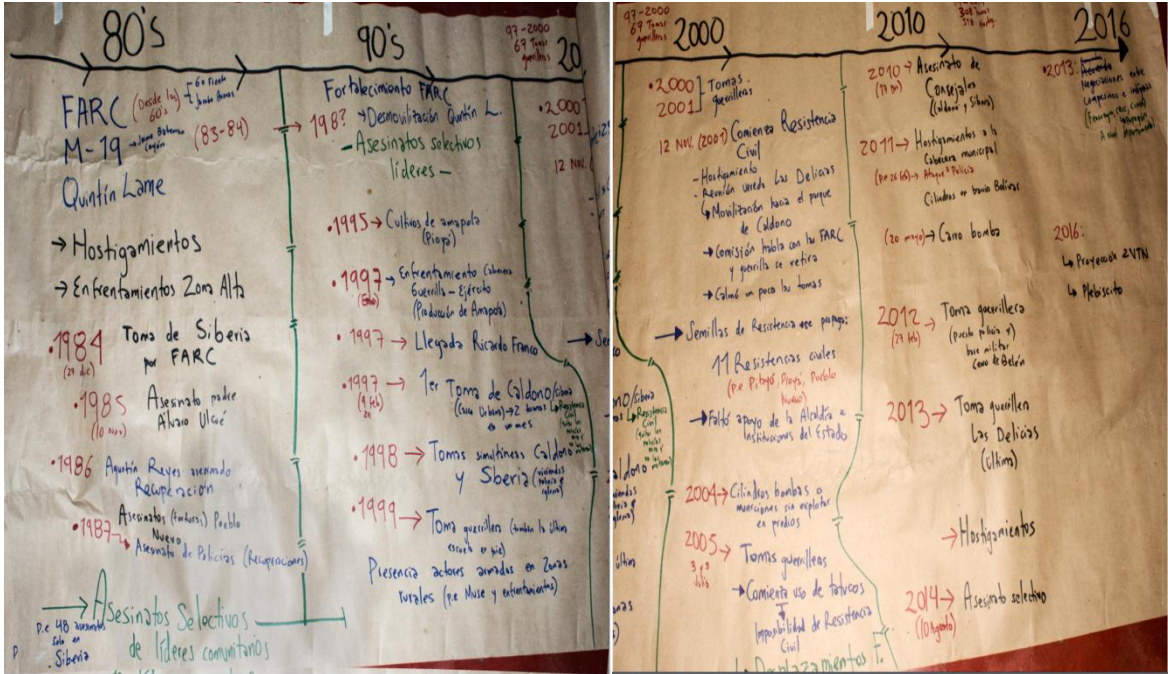 80's
FARC (Desde los 60's)
M-19 (83-84)
Quintín Lame
→ Hostigamientos
→ Enfrentamientos Zona Alta
•1984 Toma de Siberia
por FARC
•1985 Asesinato padre
(10 Nov) Álvaro Ulcué
•1986 Agustín Reyes asesinado
Recuperación
•1987 Asesinatos Pueblo
Nuevo
→ Asesinato de Policías (Recuperaciones)
→ Asesinatos Selectivos
de líderes comunitarios
p.e 48 asesinatos
solo en
Siberia
90's
97-2000
69 Tomas
guerrilleras
Fortalecimiento FARC
→ 198? → Desmovilización Quintín L.
- Asesinatos selectivos
líderes -
•1995 → Cultivos de amapola
(Pioyá)
•1997 → Enfrentamiento Cabecera
Guerrilla - Ejército
(Producción de Amapola)
•1997 → Llegada Ricardo Franco
•1997 → 1er Toma de Caldono/Siberia
(Casco Urbano) → 2 tomas
en un mes
↳ Resistencia
Civil
•1998 → Tomas simultíneas Caldono
y Siberia
•1999 → Toma guerrillera (tumban la última
escuela en pie)
Presencia actores armados en Zonas
rurales (p.e Muse y enfrentamientos)
20
•2000
2001
12 NOV.
97-2000
69 Tomas
guerrilleras
2000
•2000 Tomas
2001 guerrilleras
12 NOV. (2001) Comienza Resistencia
Civil
- Hostigamiento
- Reunión vereda Las Delicias
↳ Movilización hacia el parque
de Caldono
→ Comisión habla con las FARC
y guerrilla se retira
→ Calmó un poco las tomas
→ Semillas de Resistencia que propaga:
11 Resistencias civiles
(p.e Pitayó, Pioyá, Pueblo
Nuevo)
→ Faltó apoyo de la Alcaldía e
Instituciones del Estado
2004 → Cilindros bombas o
municiones sin explotar
en predios
2005 → Tomas guerrilleras
3 y 8
Julio
→ Comienza uso de tatucos
Imposibilidad de Resistencia
Civil
Desplazamientos F.
2010
2010 → Asesinato de
Consejales
(Caldono y Siberia)
2011 → Hostigamientos a la
Cabecera municipal
(p.e 26 feb) → Ataque Policía
Cilindros en barrio Bolívar
(20 mayo) → Carro bomba
2012 → Toma guerrillera
(puesto policía y)
base militar
Cerro de Belén
2013 → Toma guerrillera
Las Delicias
(última)
→ Hostigamientos
2014 → Asesinato selectivo
(10 Agosto)
2016
•2013:
Negociaciones entre
campesinos e indígenas
2016:
↳ Proyección ZVTN
↳ Plebiscito